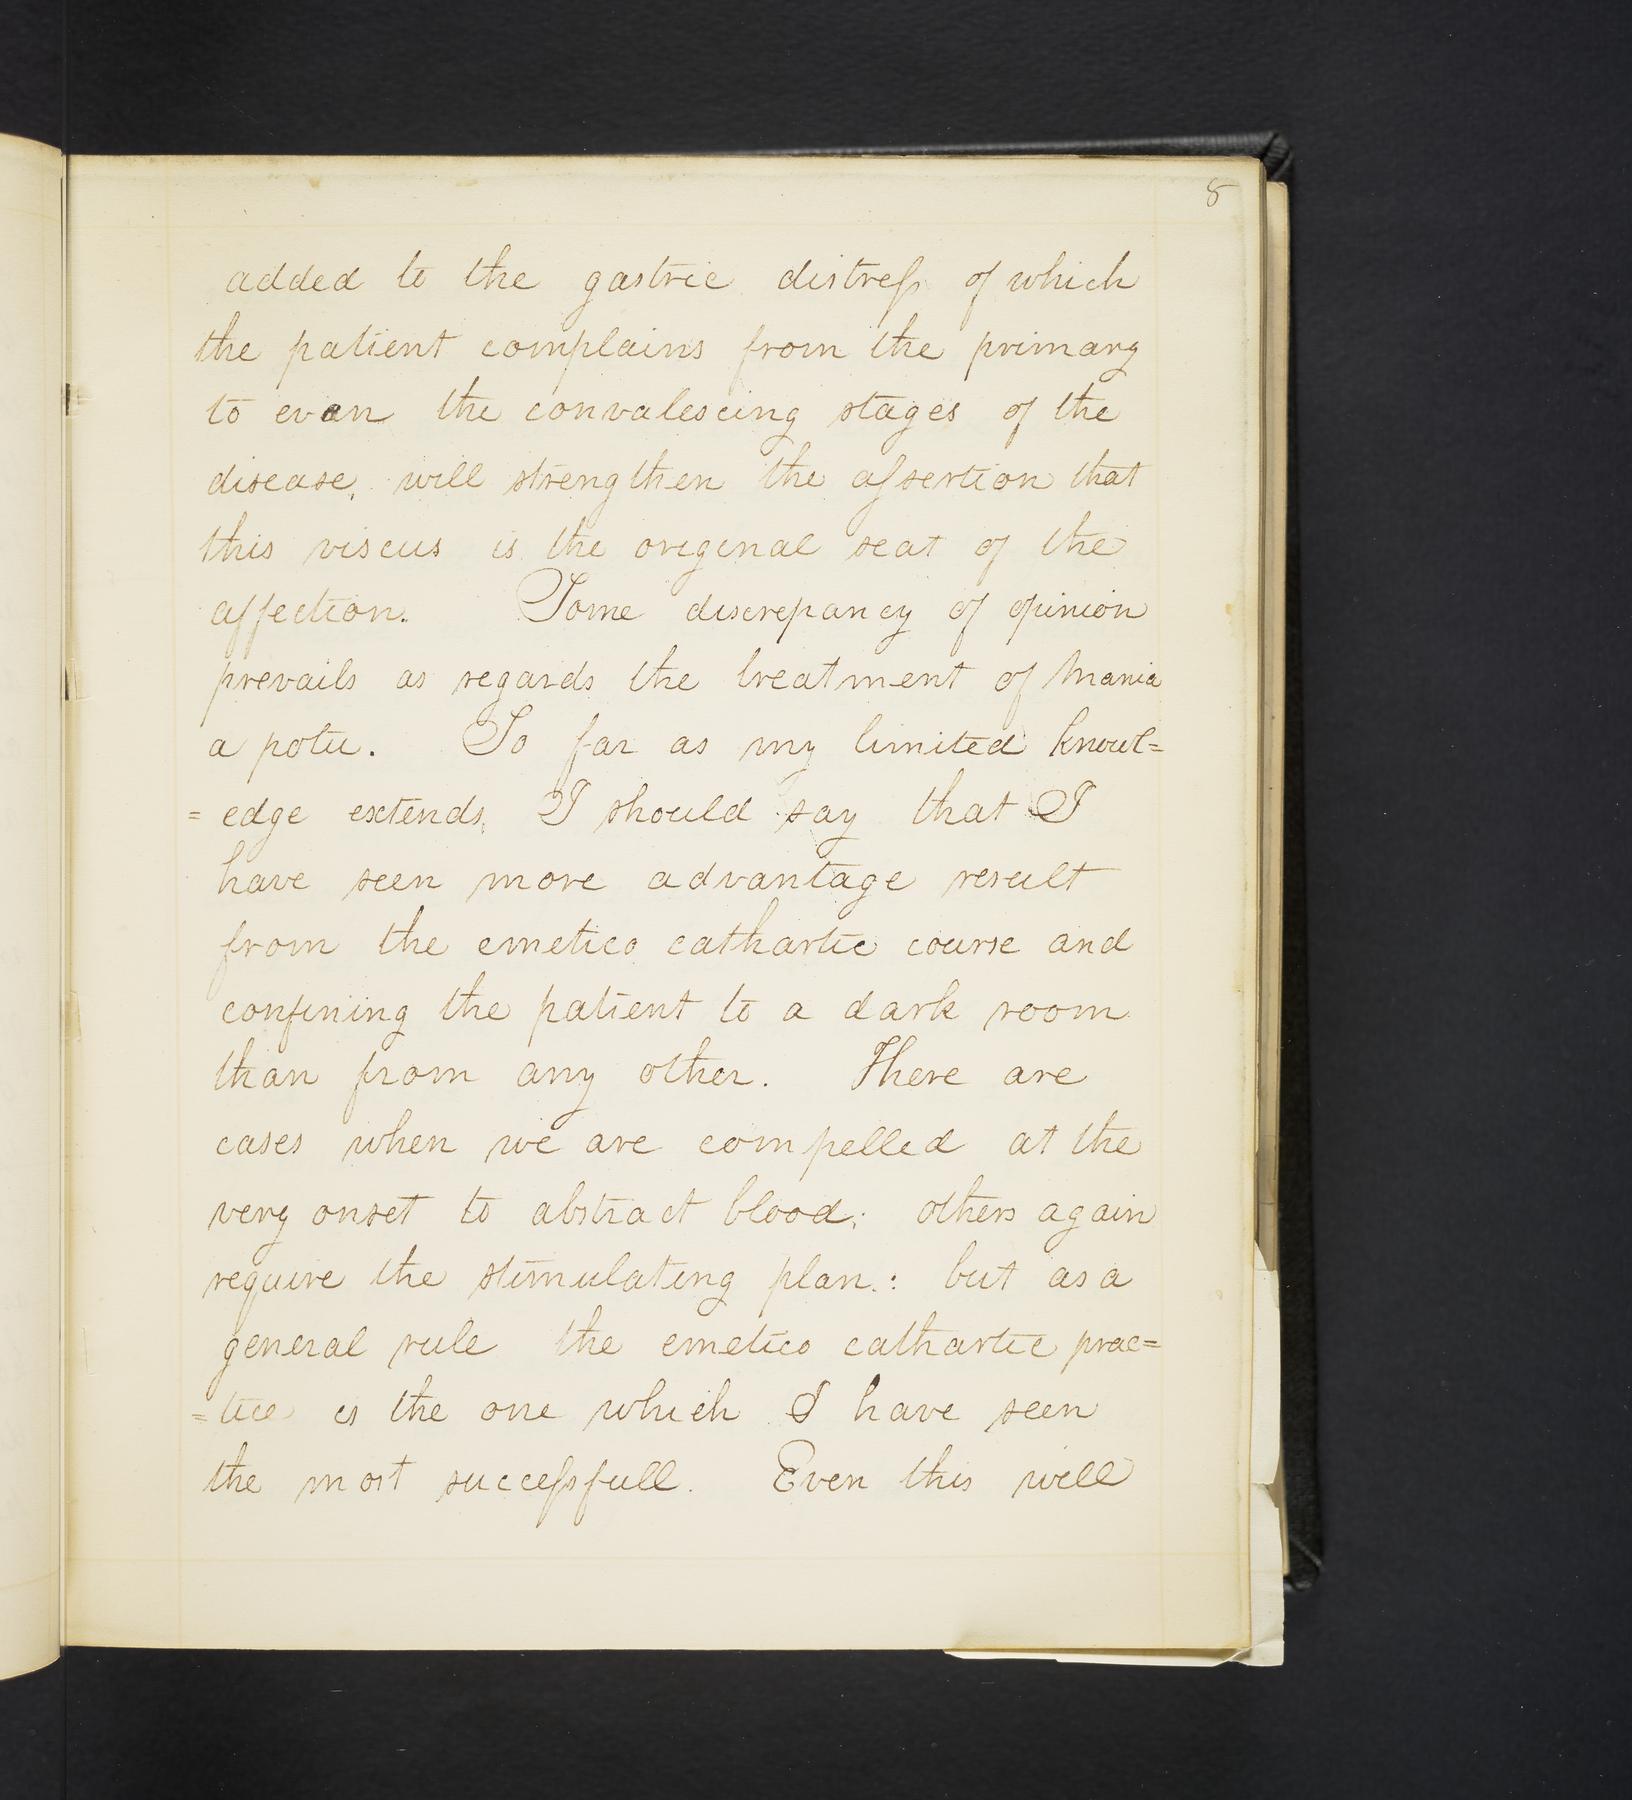 8
added to the gastric distreſs of which
the patient complains from the primary
to even the convalescing stages of the
disease, will strengthen the aſsertion that
this viscus is the original seat of the
affection. Some discrepancy of opinion
prevails as regards the treatment of Mania
a potu. So far as my limited knowl=
=edge extends, I should say that I
have seen more advantage result
from the emetico cathartic course and
confining the patient to a dark room
than from any other. There are
cases when we are compelled at the
very onset to abstract blood; others again
require the stimulating plan.: but as a
general rule the emetico cathartic prac=
=tice is the one which I have seen
the most succeſsfull. Even this will